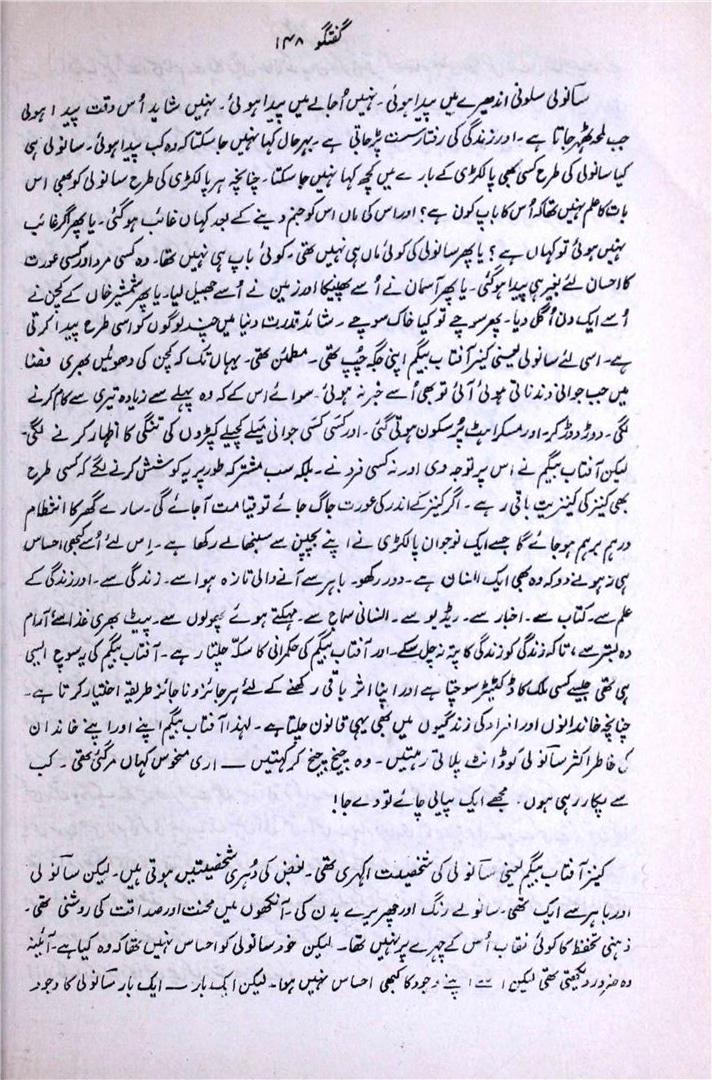 گفتگو ۱۴۸
سانولی سلونی اندھیرے میں پیدا ہوئی۔ نہیں اُجالے میں پیدا ہوئی۔ نہیں شاید اُس وقت پیدا ہوئی
جب لمحہ ٹھہر جاتا ہے۔ اور زندگی کی رفتار سست پڑجاتی ہے۔ بہرحال کہا نہیں جاسکتا کہ وہ کب پیدا ہوئی۔ سانولی ہی
کیا سانولی کی طرح کسی بھی پالکڑی کے بارے میں کچھ کہا نہیں جاسکتا۔ چنانچہ ہر پالکڑی کی طرح سانولی کو بھی اس
بات کا علم نہیں تھا کہ اُس کا باپ کون ہے؟ اور اس کی ماں اس کو جنم دینے کے بعد کہاں غائب ہوگئی۔ یا پھر اگر غائب
نہیں ہوئی تو کہاں ہے؟ یا پھر سانولی کی کوئی ماں ہی نہیں تھی۔ کوئی باپ ہی نہیں تھا۔ وہ کسی مرد اور کسی عورت
کا احسان لئے بغیر ہی پیدا ہوگئی۔ یا پھر آسمان نے اُسے پھینکا اور زمین نے اُسے جھیل لیا۔ یا پھر شمشیر خاں کے کچن نے
اُسے ایک دن اُگل دیا۔ پھر سوچے تو کیا خاک سوچے۔ شائد قدرت دنیا میں چند لوگوں کو اسی طرح پیدا کرتی
ہے۔ اسی لئے سانولی یعنی کنیز آفتاب بیگم اپنی جگہ چپ تھی۔ مطمئن تھی۔ یہاں تک کہ کچن کی دھوئیں بھری فضا
میں جب جوانی دندناتی ہوئی آئی تو بھی اُسے خبر نہ ہوئی۔ سوائے اس کے کہ وہ پہلے سے زیادہ تیزی سے کام کرنے
لگی۔ دوڑ دوڑ کر۔ اور مسکراہٹ پُر سکون ہوتی گئی۔ اور کَسی کَسی جوانی میلے کچیلے کپڑوں کی تنگی کا اظہار کرنے لگی۔
لیکن آفتاب بیگم نے اس پر توجہ دی اور نہ کسی فرد نے۔ بلکہ سب مشترکہ طور پر یہ کوشش کرنے لگے کہ کسی طرح
بھی کنیز کی کنیزیت باقی رہے۔ اگر کنیز کے اندر کی عورت جاگ جائے تو قیامت آجائے گی۔ سارے گھر کا انتظام
درہم برہم ہوجائے گا جسے ایک نوجوان پالکڑی نے اپنے بچپن سے سنبھالے رکھا ہے۔ اِس لئے اُسے کبھی احساس
ہی نہ ہونے دو کہ وہ بھی ایک انسان ہے۔ دور رکھو۔ باہر سے آنے والی تازہ ہوا سے۔ زندگی سے۔ اور زندگی کے
علم سے۔ کتاب سے۔ اخبار سے۔ ریڈیو سے۔ انسانی سماج سے۔ مہکتے ہوئے پھولوں سے۔ پیٹ بھری غذا سے آرام
دہ بستر سے، تاکہ زندگی کو زندگی کا پتہ نہ چل سکے۔ اور آفتاب بیگم کی حکمرانی کا سکہ چلتا رہے۔ آفتاب بیگم کی یہ سوچ ایسی
ہی تھی جیسے کسی ملک کا ڈکٹیٹر سوچتا ہے اور اپنا اثر باقی رکھنے کے لئے ہر جائز و ناجائز طریقہ اختیار کرتا ہے۔
چنانچہ خاندانوں اور افراد کی زندگیوں میں بھی یہی قانون چلتا ہے۔ لہٰذا آفتاب بیگم اپنے اور اپنے خاندان
کی خاطر اکثر سانولی کو ڈانٹ پلاتی رہتیں۔ وہ چیخ چیخ کر کہتیں — اری منحوس کہاں مر گئی تھی۔ کب
سے پکار رہی ہوں۔ مجھے ایک پیالی چائے تو دے جا!
کنیز آفتاب بیگم یعنی سانولی کی شخصیت اکہری تھی۔ بعض کی دُہری شخصیتیں ہوتی ہیں۔ لیکن سانولی
اور باہر سے ایک تھی۔ سانولے رنگ اور چھریرے بدن کی۔ آنکھوں میں محنت اور صداقت کی روشنی تھی۔
ذہنی تحفظ کا کوئی نقاب اُس کے چہرے پر نہیں تھا۔ لیکن خود سانولی کو احساس نہیں تھا کہ وہ کیا ہے۔ آئینہ
وہ ضرور دیکھتی تھی لیکن اسے اپنے وجود کا کبھی احساس نہیں ہوا۔ لیکن ایک بار — ایک بار سانولی کا وجود